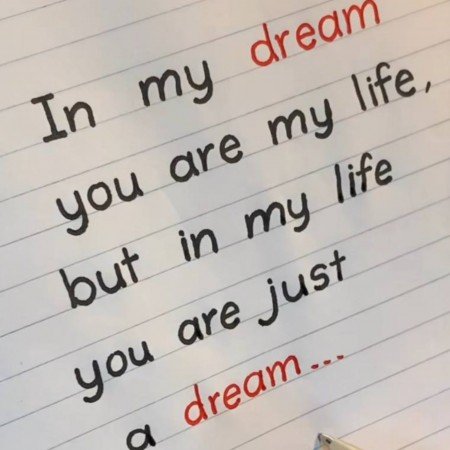 In my dream
you are my life,
but in my life
you are just
a dream...